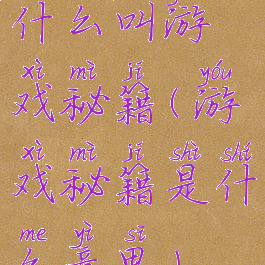 什么叫游
xì mì jí yóu
戏秘籍(游
xì mì jí shì shí
戏秘籍是什
me yì si
么意思)